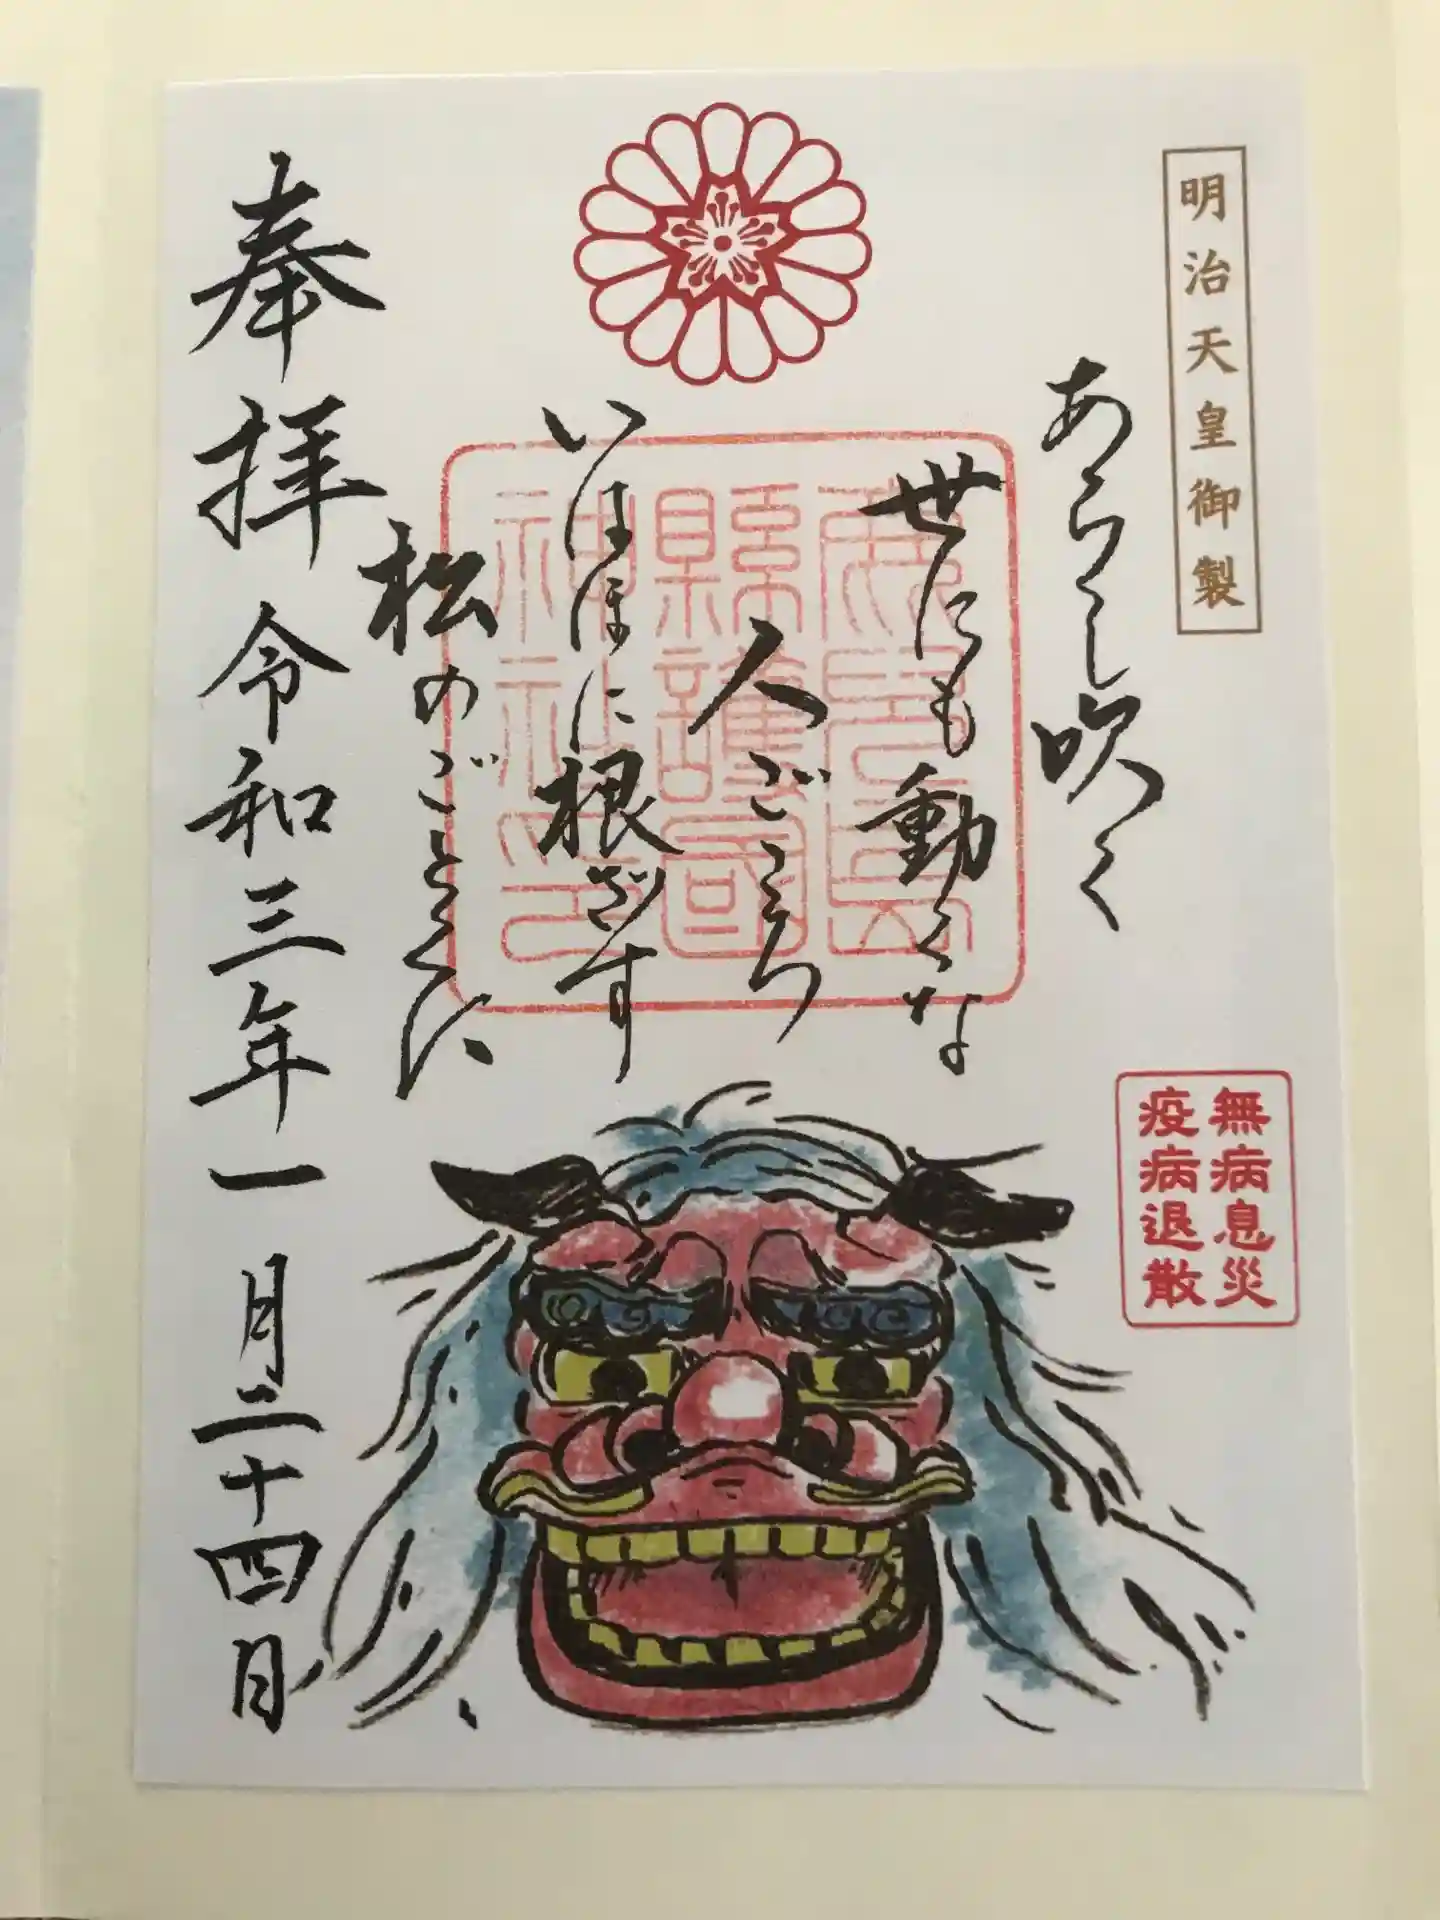 明治天皇御製
あらし吹く
世にも動くな
人ごころ
いはほに根ざす
松のごとくに
奉拝
令和三年一月二十四日
鹿児島
縣護國
神社印
無病息災
疫病退散